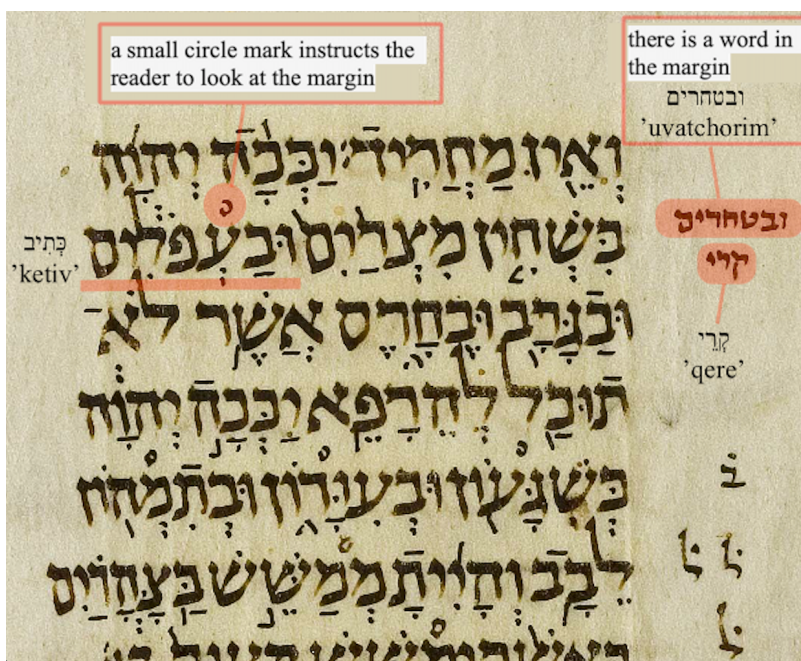 a small circle mark instructs the
reader to look at the margin
there is a word in
the margin
ובטחרים
'uvatchorim'
וְאֵין מַחֲרִיד׃ יַכְּכָה יְהֹוָה
ובטחרים
קרי
כְּתִיב
'ketiv'
בִּשְׁחִין מִצְרַיִם וּבַעְפֹלִים
וּבַגָּרָב וּבֶחָרֶס אֲשֶׁר לֹא־
קְרֵי
'qere'
תּוּכַל לְהֵרָפֵא יַכְּכָה יְהֹוָה
בְּשִׁגָּעוֹן וּבְעִוָּרוֹן וּבְתִמְהוֹן
ב
לֵבָב וְהָיִיתָ מְמַשֵּׁשׁ בַּצָּהֳרַיִם
ל ל
ל